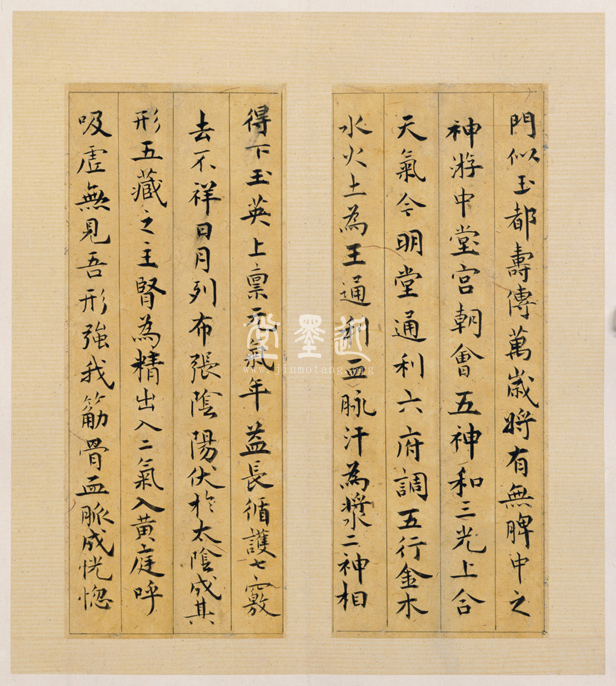 門似玉都壽傳萬歲將有無脾中之
神游中堂宮朝會五神和三光上合
天氣令明堂通利六府調五行金木
水火土為王通利血脉汗為漿二神相
得下玉英上稟元氣年益長循護七竅
去不祥日月列布張陰陽伏於太陰成其
形五藏之主腎為精出入二氣入黃庭呼
吸虛無見吾形強我筋骨血脈成恍惚
逝墨堂